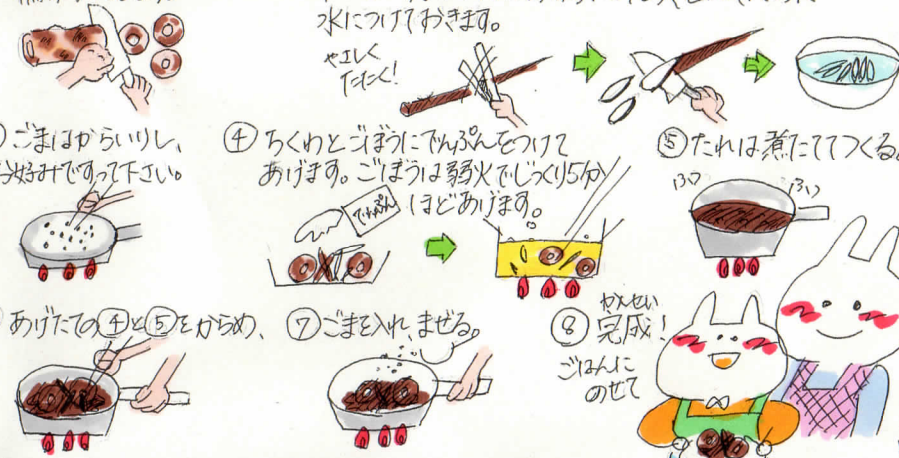 水につけておきます。
やさしく
たたく!
ごまはからいりし、
好みですって下さい。
④ ちくわとごぼうにでんぷんをつけて
あげます。ごぼうは弱火でじっくり5分
ほどあげます。
でんぷん
⑤ たれは煮たててつくる。
ふつ
ふつ
あげたての④と⑤をからめ、
⑦ ごまを入れ、まぜる。
⑧ 完成!
かんせい
ごはんに
のせて